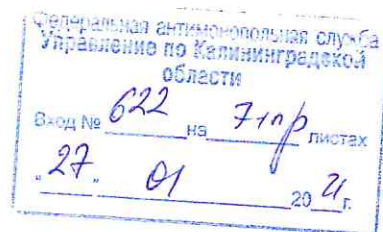 Федеральная антимонопольная служба
Управление по Калининградской
области
Вход № 622 на 7+пр листах
"27" 01 2021 г.